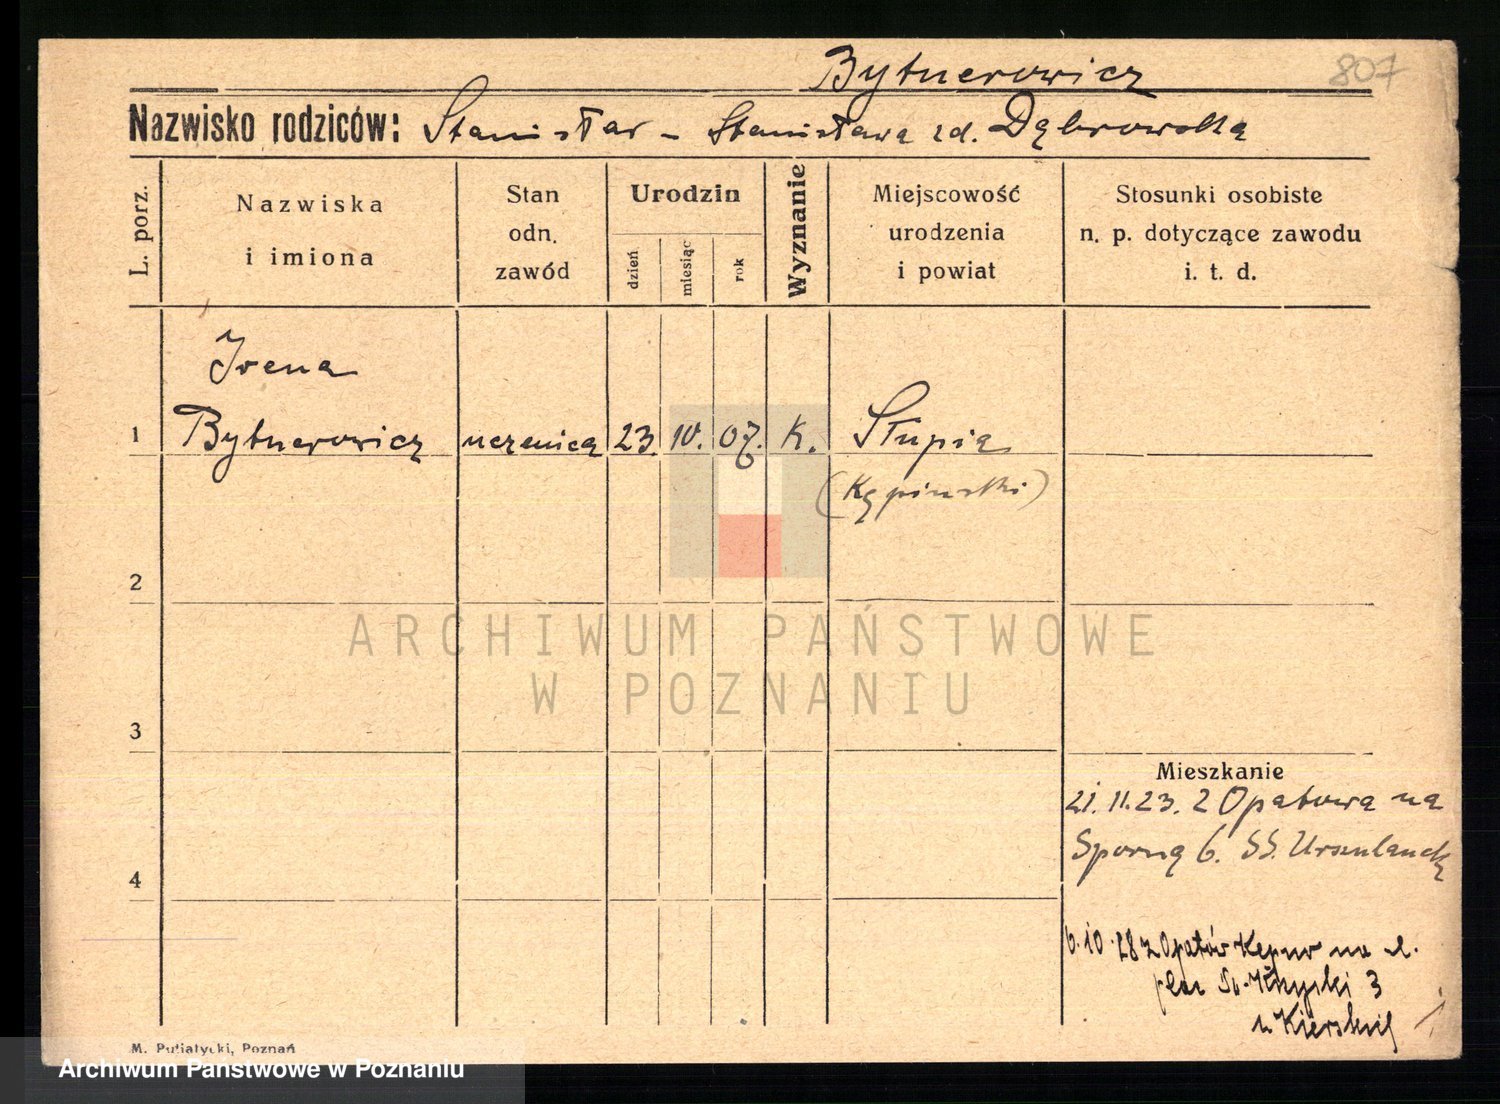 Bytnerowicz
807
Nazwisko rodziców: Stanisław - Stanisława zd. Dąbrowska
L. porz.
Nazwiska
i imiona
Stan
odn.
zawód
Urodzin
dzień
miesiąc
rok
Wyznanie
Miejscowość
urodzenia
i powiat
Stosunki osobiste
n. p. dotyczące zawodu
i. t. d.
Irena
1 Bytnerowicz uczenica 23. 10. 07. K. Słupia
(Kępiński)
2
ARCHIWUM PAŃSTWOWE
W POZNANIU
3
Mieszkanie
21. 11. 23. z Opatowa na
Sporną 6. SS. Urszulanek
4
6.10.28 z Opatów Kępno na
plac 3
u Kierskiej
M. Putiatycki, Poznań
Archiwum Państwowe w Poznaniu